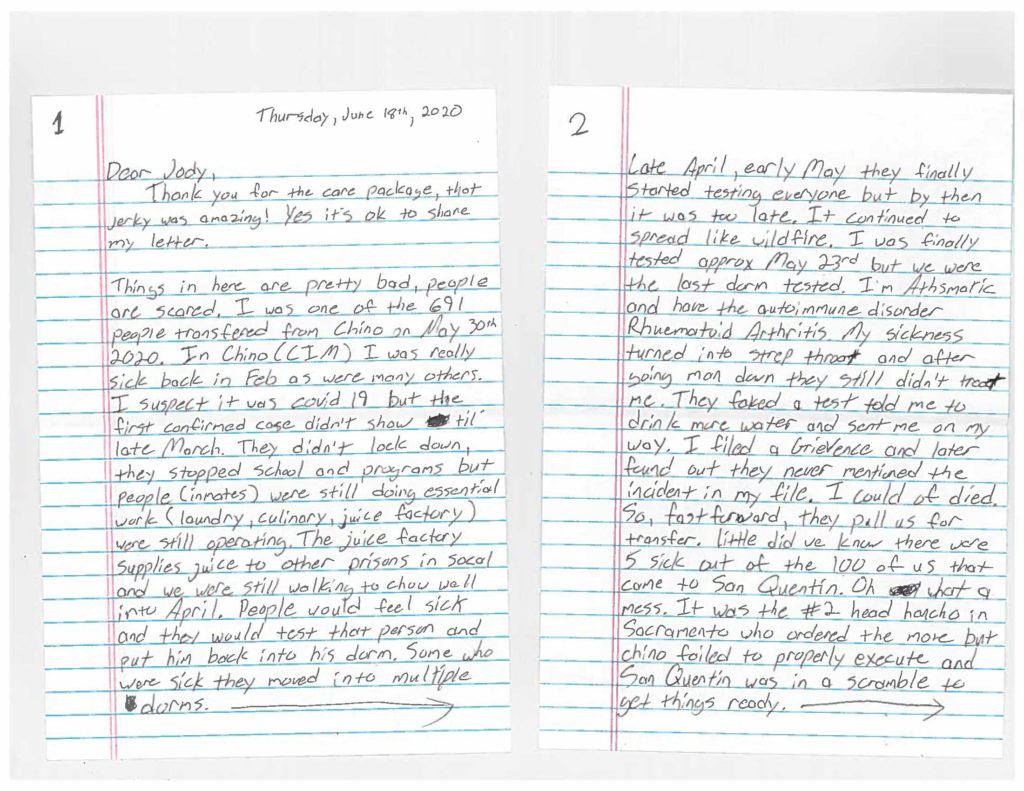 1
Thursday, June 18th, 2020
Dear Jody,
Thank you for the care package, that
jerky was amazing! Yes it's ok to share
my letter.
Things in here are pretty bad, people
are scared. I was one of the 691
people transfered from Chino on May 30th
2020. In Chino (CIM) I was really
sick back in Feb as were many others.
I suspect it was covid 19 but the
first confirmed case didn't show til'
late March. They didn't lock down,
they stopped school and programs but
people (inmates) were still doing essential
work (laundry, culinary, juice factory)
were still operating. The juice factory
supplies juice to other prisons in socal
and we were still walking to chow well
into April. People would feel sick
and they would test that person and
put him back into his dorm. Some who
were sick they moved into multiple
dorms.
2
Late April, early May they finally
started testing everyone but by then
it was too late. It continued to
spread like wildfire. I was finally
tested approx May 23rd but we were
the last dorm tested. I'm Athsmatic
and have the autoimmune disorder
Rhuematoid Arthritis. My sickness
turned into strep throat and after
going man down they still didn't treat
me. They faked a test told me to
drink more water and sent me on my
way. I filed a Grievence and later
found out they never mentioned the
incident in my file. I could of died.
So, fastforward, they pull us for
transfer. little did we know there were
5 sick out of the 100 of us that
came to San Quentin. Oh what a
mess. It was the #2 head honcho in
Sacramento who ordered the move but
chino failed to properly execute and
San Quentin was in a scramble to
get things ready.